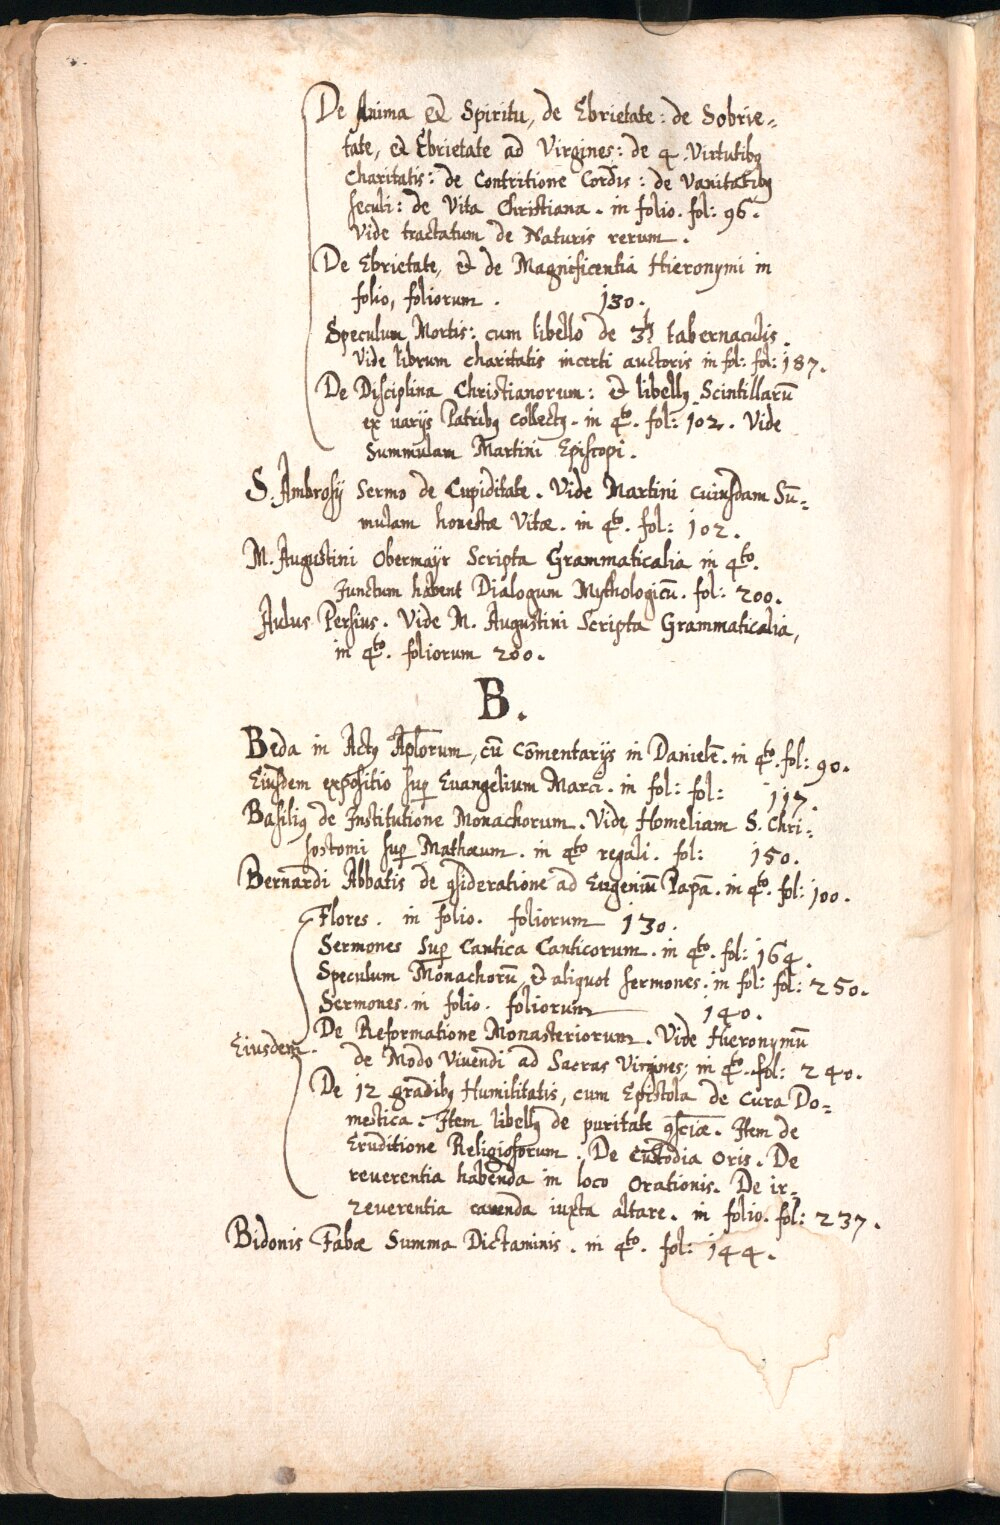 De Anima et Spiritu, de Ebrietate: de Sobrie-
tate, et Ebrietate ad Virgines: de 4 Virtutibꝰ
Charitatis: de Contritione Cordis: de Vanitatibꝰ
seculi: de Vita Christiana. in folio. fol: 96.
Vide tractatum de Naturis rerum.
De Ebrietate, et de Magnificentia Hieronymi in
folio, foliorum. 130.
Speculum Mortis: cum libello de 3bꝰ tabernaculis.
Vide librum charitatis incerti auctoris in fol: fol: 187.
De Disciplina Christianorum: et libellꝰ Scintillarū
ex varijs Patribꝰ collectꝰ. in 4to. fol: 102. Vide
Summulam Martini Episcopi.
S. Ambrosij Sermo de Cupiditate. Vide Martini cuiusdam Sū-
mulam honestæ Vitæ. in 4to. fol: 102.
M. Augustini Obermayr Scripta Grammaticalia in 4to.
Junctum habent Dialogum Mythologicū. fol: 200.
Aulus Persius. Vide M. Augustini Scripta Grammaticalia,
in 4to. foliorum 200.
B.
Beda in Actꝰ Aplorum, cū Cōmentarijs in Danielē. in 4to. fol: 90.
Eiusdem expositio sup̱ Euangelium Marci. in fol: fol: 117.
Basiliꝰ de Institutione Monachorum. Vide Homeliam S. Chri-
sostomi sup̱ Mathæum. in 4to regali. fol: 150.
Bernardi Abbatis de ꝯsideratione ad Eugeniū Papā. in 4to. fol: 100.
Flores. in folio. foliorum 130.
Sermones sup̱ Cantica Canticorum. in 4to. fol: 164.
Speculum Monachorū, et aliquot sermones. in fol: fol: 250.
Sermones. in folio. foliorum 140.
De Reformatione Monasteriorum. Vide Hieronymū
Eiusdem.
de Modo Viuendi ad Sacras Virgines, in 4to. fol: 240.
De 12 gradibꝰ Humilitatis, cum Epistola de Cura Do-
mestica. Item libellꝰ de puritate ꝯsciæ. Item de
Eruditione Religiosorum. De Custodia Oris. De
reuerentia habenda in loco Orationis. De ir-
reuerentia cauenda iuxta altare. in folio. fol: 237.
Bidonis Fabæ Summa Dictaminis. in 4to. fol: 144.